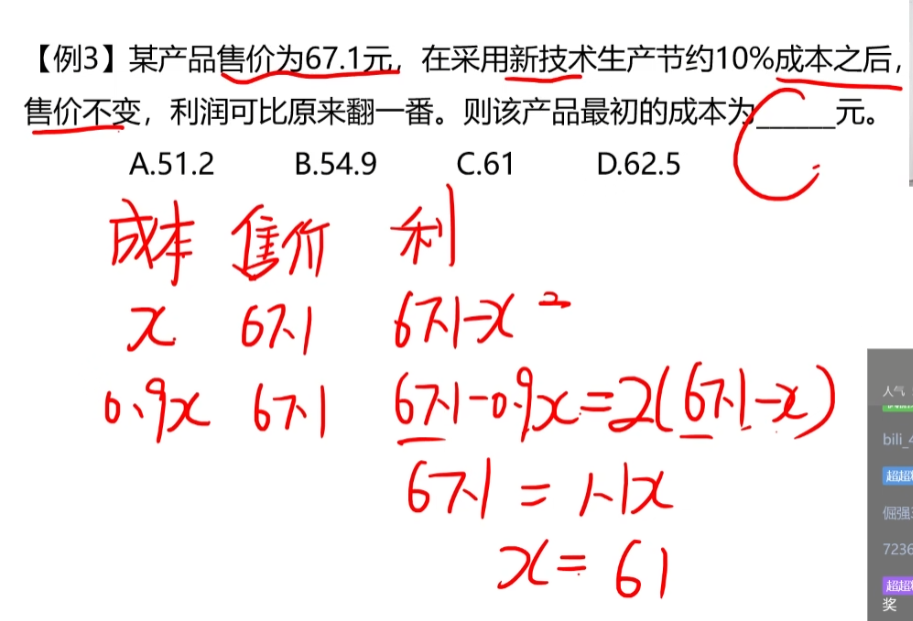 【例3】某产品售价为67.1元，在采用新技术生产节约10%成本之后，
售价不变，利润可比原来翻一番。则该产品最初的成本为______元。
C
A.51.2 B.54.9 C.61 D.62.5
成本 售价 利
x 67.1 67.1-x 2
0.9x 67.1 67.1-0.9x=2(67.1-x)
67.1=1.1x
x=61
人气
bili_4
超超
倔强
7236
超超
奖